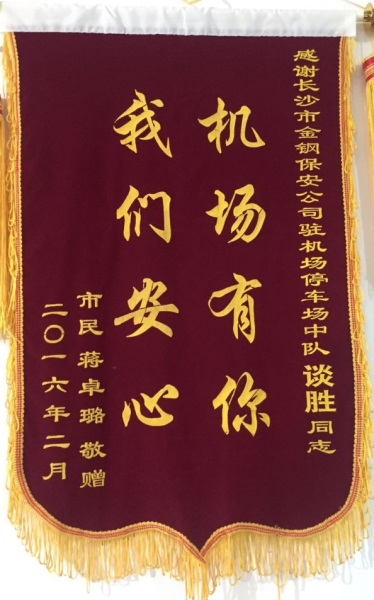 感谢长沙市金钢保安公司驻机场停车场中队谈胜同志
机场有你
我们安心
市民蒋卓璐敬赠
二〇一六年二月